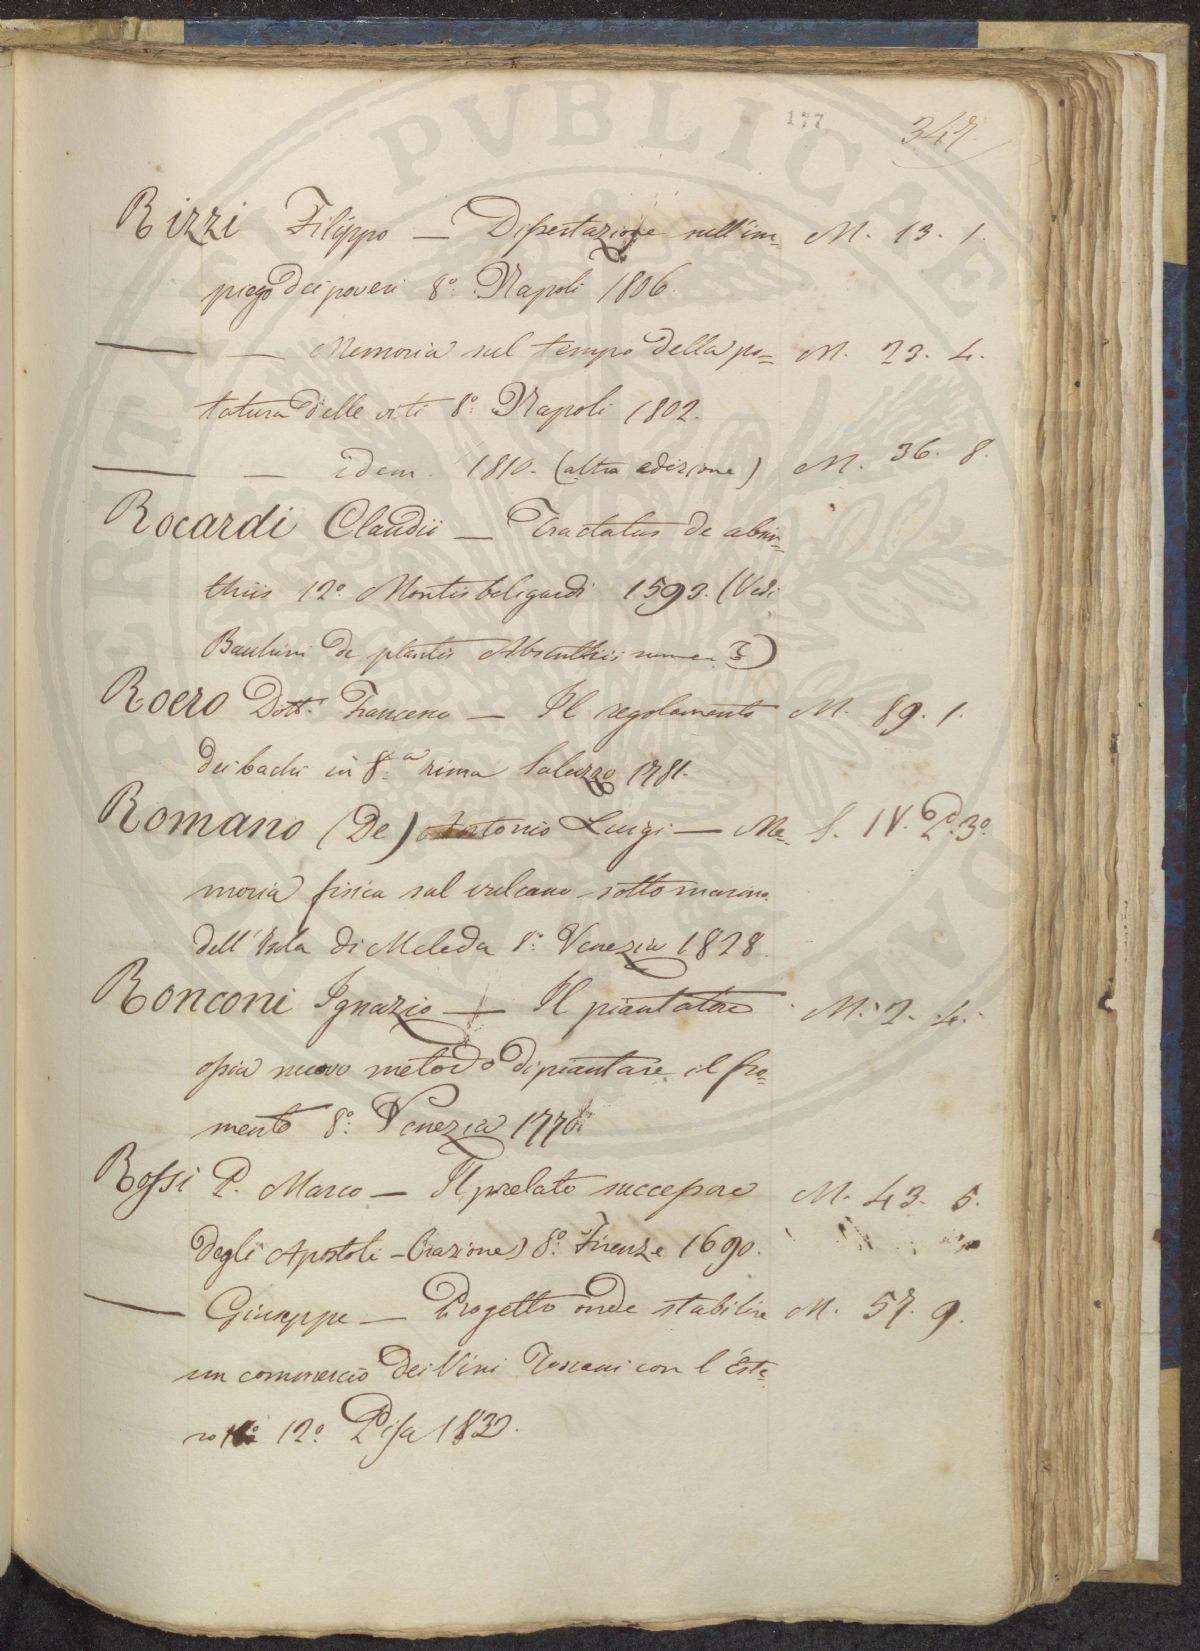 177
347.
Rizzi Filippo — Dissertazione sull'im= M. 13. 1.
piego dei poveri 8º. Napoli 1806.
— — Memoria sul tempo della po= M. 23. 4.
tatura delle viti 8º. Napoli 1802.
— — idem. 1810. (altra edizione) M. 36. 8.
Rocardi Claudii — Tractatus de absin=
thiis 12º. Montisbeligardi 1593. (Vedi
Bauhini de plantis Absinthiis
Roero Dott. Francesco — Il regolamento M. 89. 1.
dei bachi in 8.ª rima Saluzzo 1781.
Romano (De) Antonio Luigi — Me= S. IV. P. 3º.
moria fisica sul vulcano sottomarino
dell'Isola di Meleda 8º. Venezia 1828.
Ronconi Ignazio — Il piantatore M. 2. 4.
ossia nuovo metodo di piantare il fro=
mento 8º. Venezia 1776.
Rossi P. Marco — Il prelato successore M. 43. 5.
degli Apostoli - Orazione) 8º. Firenze 1690.
— Giuseppe — Progetto onde stabilire M. 57. 9.
un commercio dei Vini Toscani con l'Este=
ro 12º. Pisa 1832.
PERITAT PVBLICAE